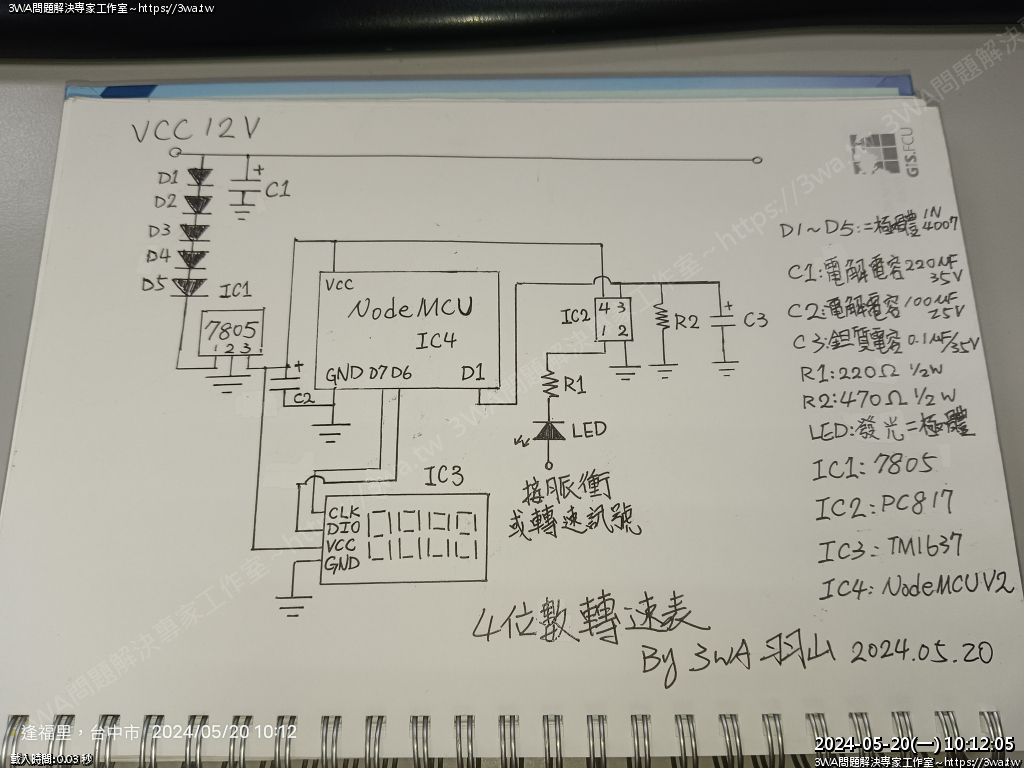 3WA問題解決專家工作室~https://3wa.tw
VCC 12V
GIS.FCU
D1
D2
D3
D4
D5
C1
IC1
7805
1 2 3
C2
VCC
NodeMCU
IC4
GND D7 D6 D1
IC2
4 3
1 2
R2
C3
R1
LED
接脈衝
或轉速訊號
IC3
CLK
DIO
VCC
GND
D1~D5:二極體 1N4007
C1:電解電容 220uF 35V
C2:電解電容 100uF 25V
C3:鉭質電容 0.1uF/35V
R1:220Ω 1/2W
R2:470Ω 1/2W
LED:發光二極體
IC1:7805
IC2:PC817
IC3:TM1637
IC4:NodeMCU V2
4位數轉速表
By 3WA 羽山 2024.05.20
逢福里，台中市 2024/05/20 10:12
載入時間:0.03 秒
2024-05-20(一) 10:12:05
3WA問題解決專家工作室~https://3wa.tw